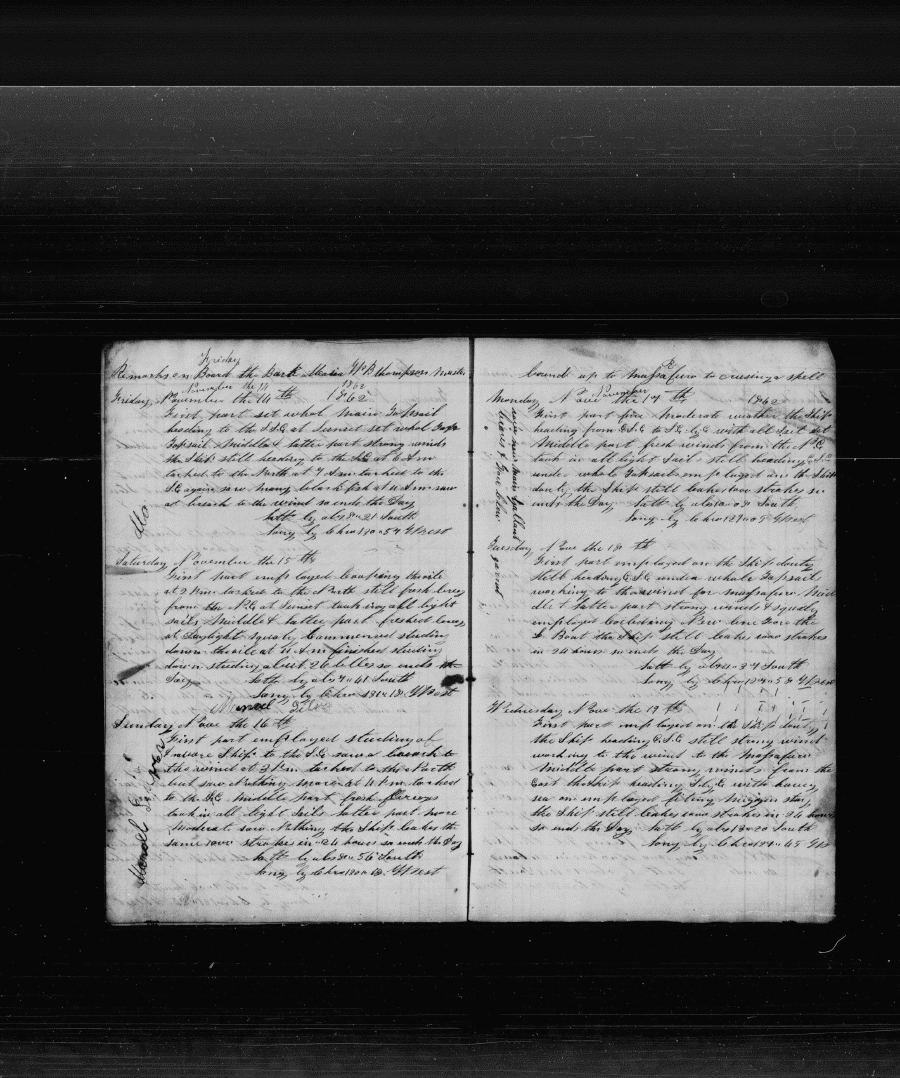 Friday
Remarks on Board the Bark Maria W B thompson Mast
November the 14 1862
Friday, November the 14 th 1862
First part set whol Main Topsail
heading to the S.E. at Sunset set whol
Topsail Middle & latter part strong winds
the Ship still heading to the S.E. at 6 A.m
tacked to the North at 9 A.m tacked to the
S.E again saw many black fish at 11 A.m saw
a breach to the wind so ends the Day
Latt by abs South
Long by Chro 110 - 54 West
Saturday November the 15 th
First part employed
at 3 P.m tacked to the North still fresh breeze
from the N.E at Sunset took in all light
sails Middle & latter part freshed breeze
at Daylight squaly Commenced
down the oil at 11 A.m finished
down about 26 bbls so ends the
Day Latt by abs 41 South
Long by Chro West
Manuel
Sunday Nove the 16 th
First part employed
Square Ship to the S.E. saw a breach to
the wind at 3 P.m tacked to the North
but saw Nothing more at 4 P.m tacked
to the S.E. middle part fresh Breeze
took in all light Sails latter part more
Moderate saw Nothing the Ship leakes the
same strokes in 24 hours so ends the Day
Latt by abs 56 South
Long by Chro West
bound up to Massafuro to cruising a spell
November
Monday Nove the 17 th 1862
First part fine Moderate weather the Ship
heading from E.S.E to S.E. by E with all sail set
Middle part fresh winds from the N.E
took in all light Sails still heading E.S.E
under whole Topsails employed on the Ship
douty the Ship still leakes strokes so
ends the Day Latt by abs South
Long by Chro West
Tuesday Nove the 18 th
First part employed on the Ship douty
still heading E.S.E under whole Topsail
working to the wind for massafuro Mid
dle & latter part strong winds & squaly
employed New line for the
Boat the Ship still leakes strokes
in 24 hours so ends the Day
Latt by abs South
Long by Chro West
Wednesday Nove the 19 th
First part employed on the Ship douty
the Ship heading E.S.E still strong wind
working to the wind to the Massafuro
Middle part strong winds from the
East the Ship heading S.E. by E with heavy
sea on employed fiting stay
the Ship still leakes strokes in 24 hours
so ends the Day Latt by abs South
Long by Chro 45 West